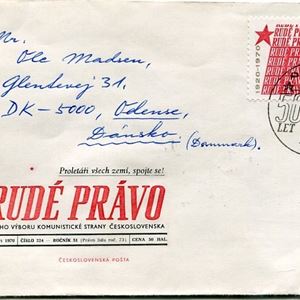 Mr.
Ole Madsen,
Glentevej 31,
DK-5000, Odense,
Dánsko (Danmark).
1920-1970
RUDÉ PRÁVO
RUDÉ PRÁVO
50
LET
Proletáři všech zemí, spojte se!
RUDÉ PRÁVO
HO VÝBORU KOMUNISTICKÉ STRANY ČESKOSLOVENSKA
1970 | ČÍSLO 224 - ROČNÍK 51 (Právo lidu roč. 73) | CENA 50 HAL.
ČESKOSLOVENSKÁ POŠTA